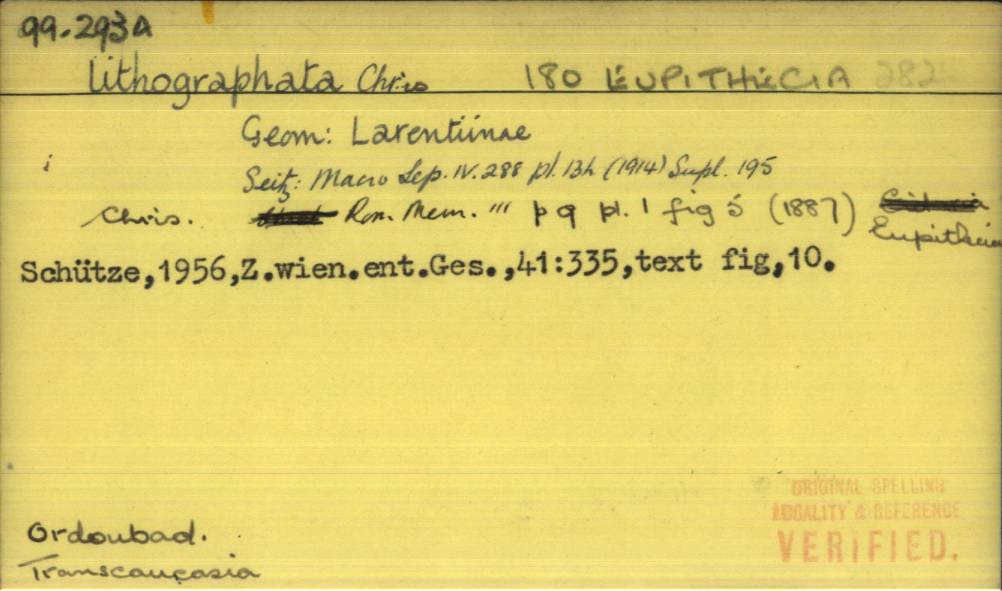 99.293A
lithographata Chris 180 EUPITHECIA 282
Geom: Larentiinae
i
Seitz: Macro Lep. IV. 288 pl. 13h (1914) Supl. 195
Chris. Rom. Mem. "' p 9 pl. 1 fig 5 (1887)
Eupithecia
Schütze,1956,Z.wien.ent.Ges.,41:335,text fig,10.
ORIGINAL SPELLING
LOCALITY & REFERENCE
VERIFIED.
Ordoubad.
Transcaucasia